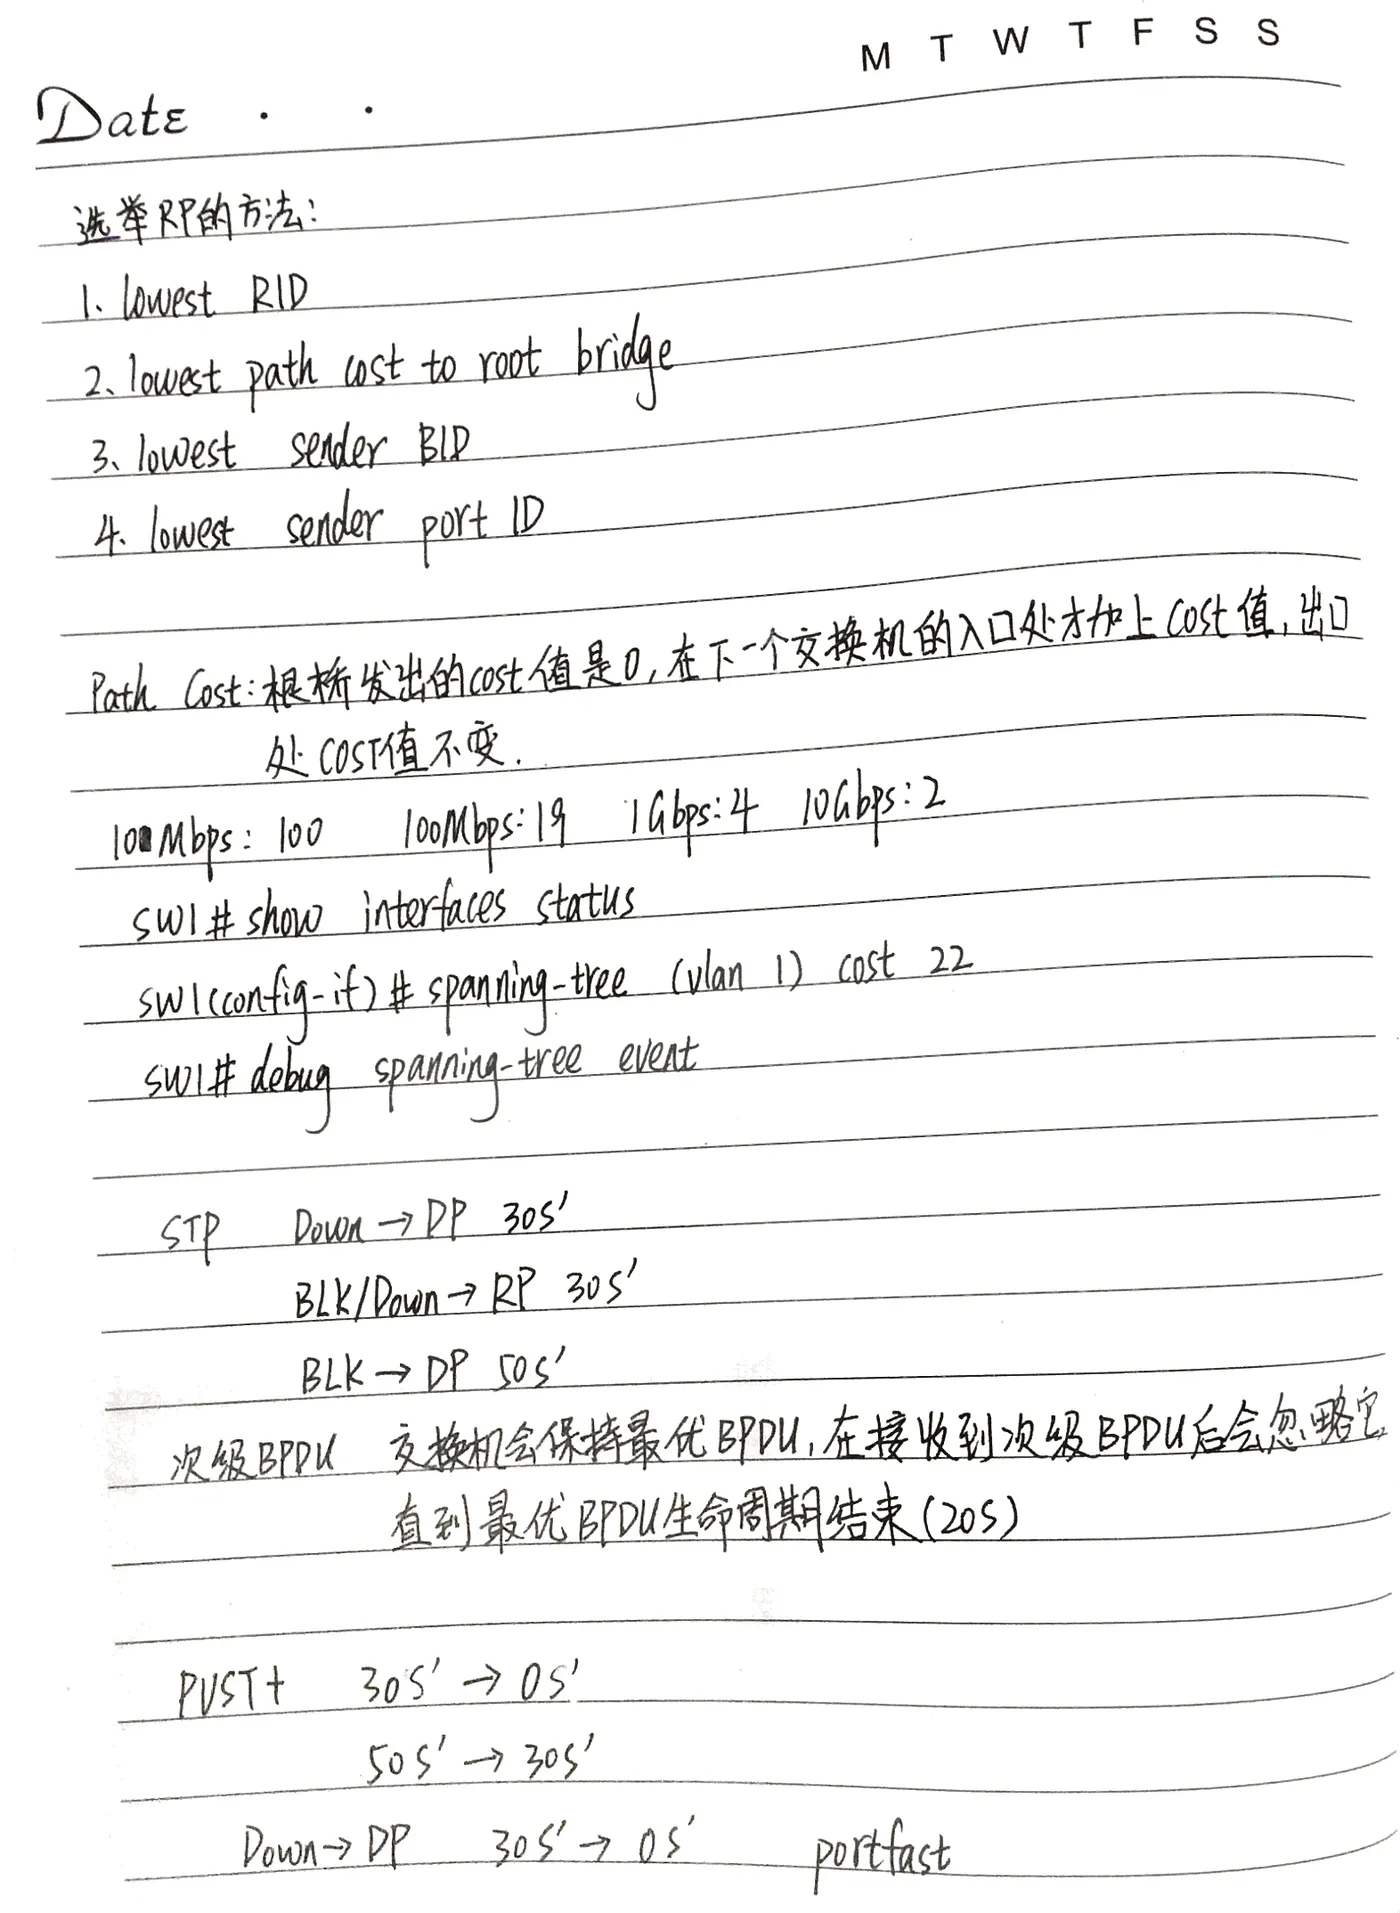 M T W T F S S
Date . .
选举RP的方法:
1. lowest RID
2. lowest path cost to root bridge
3. lowest sender BID
4. lowest sender port ID
Path Cost:根桥发出的cost值是0,在下一个交换机的入口处才加上cost值,出口
处COST值不变.
10Mbps: 100 100Mbps:19 1Gbps:4 10Gbps:2
SW1# show interfaces status
SW1(config-if)# spanning-tree (vlan 1) cost 22
SW1# debug spanning-tree event
STP Down→DP 30S'
BLK/Down→RP 30S'
BLK→DP 50S'
次级BPDU 交换机会保持最优BPDU,在接收到次级BPDU后会忽略它,
直到最优BPDU生命周期结束(20S)
PVST+ 30S'→0S'
50S'→30S'
Down→DP 30S'→0S' portfast